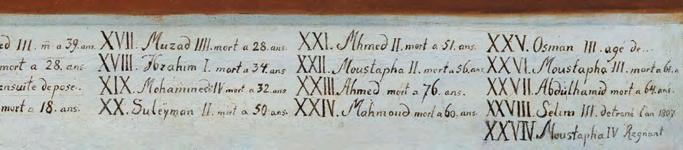 ed III. m a 39. ans. XVII. Muzad IIII. mort a 28. ans. XXI. Ahmed II. mort a 51. ans. XXV. Osman III. agé de...
mort a 28. ans XVIII. Ibrahim I. mort a 34. ans XXII. Moustapha II. mort a 56. ans XXVI. Moustapha III. mort a 61. a
ensuite depose. XIX. Mohammed IV mort a 32 ans XXIII. Ahmed mort a 76. ans. XXVII. Abdulhamid mort a 64. ans.
mort a 18. ans. XX. Suleÿman II. mort a 50. ans XXIV. Mahmoud mort a 60. ans. XXVIII. Selim III. detroné l'an 1807
XXVIV. Moustapha IV Regnant